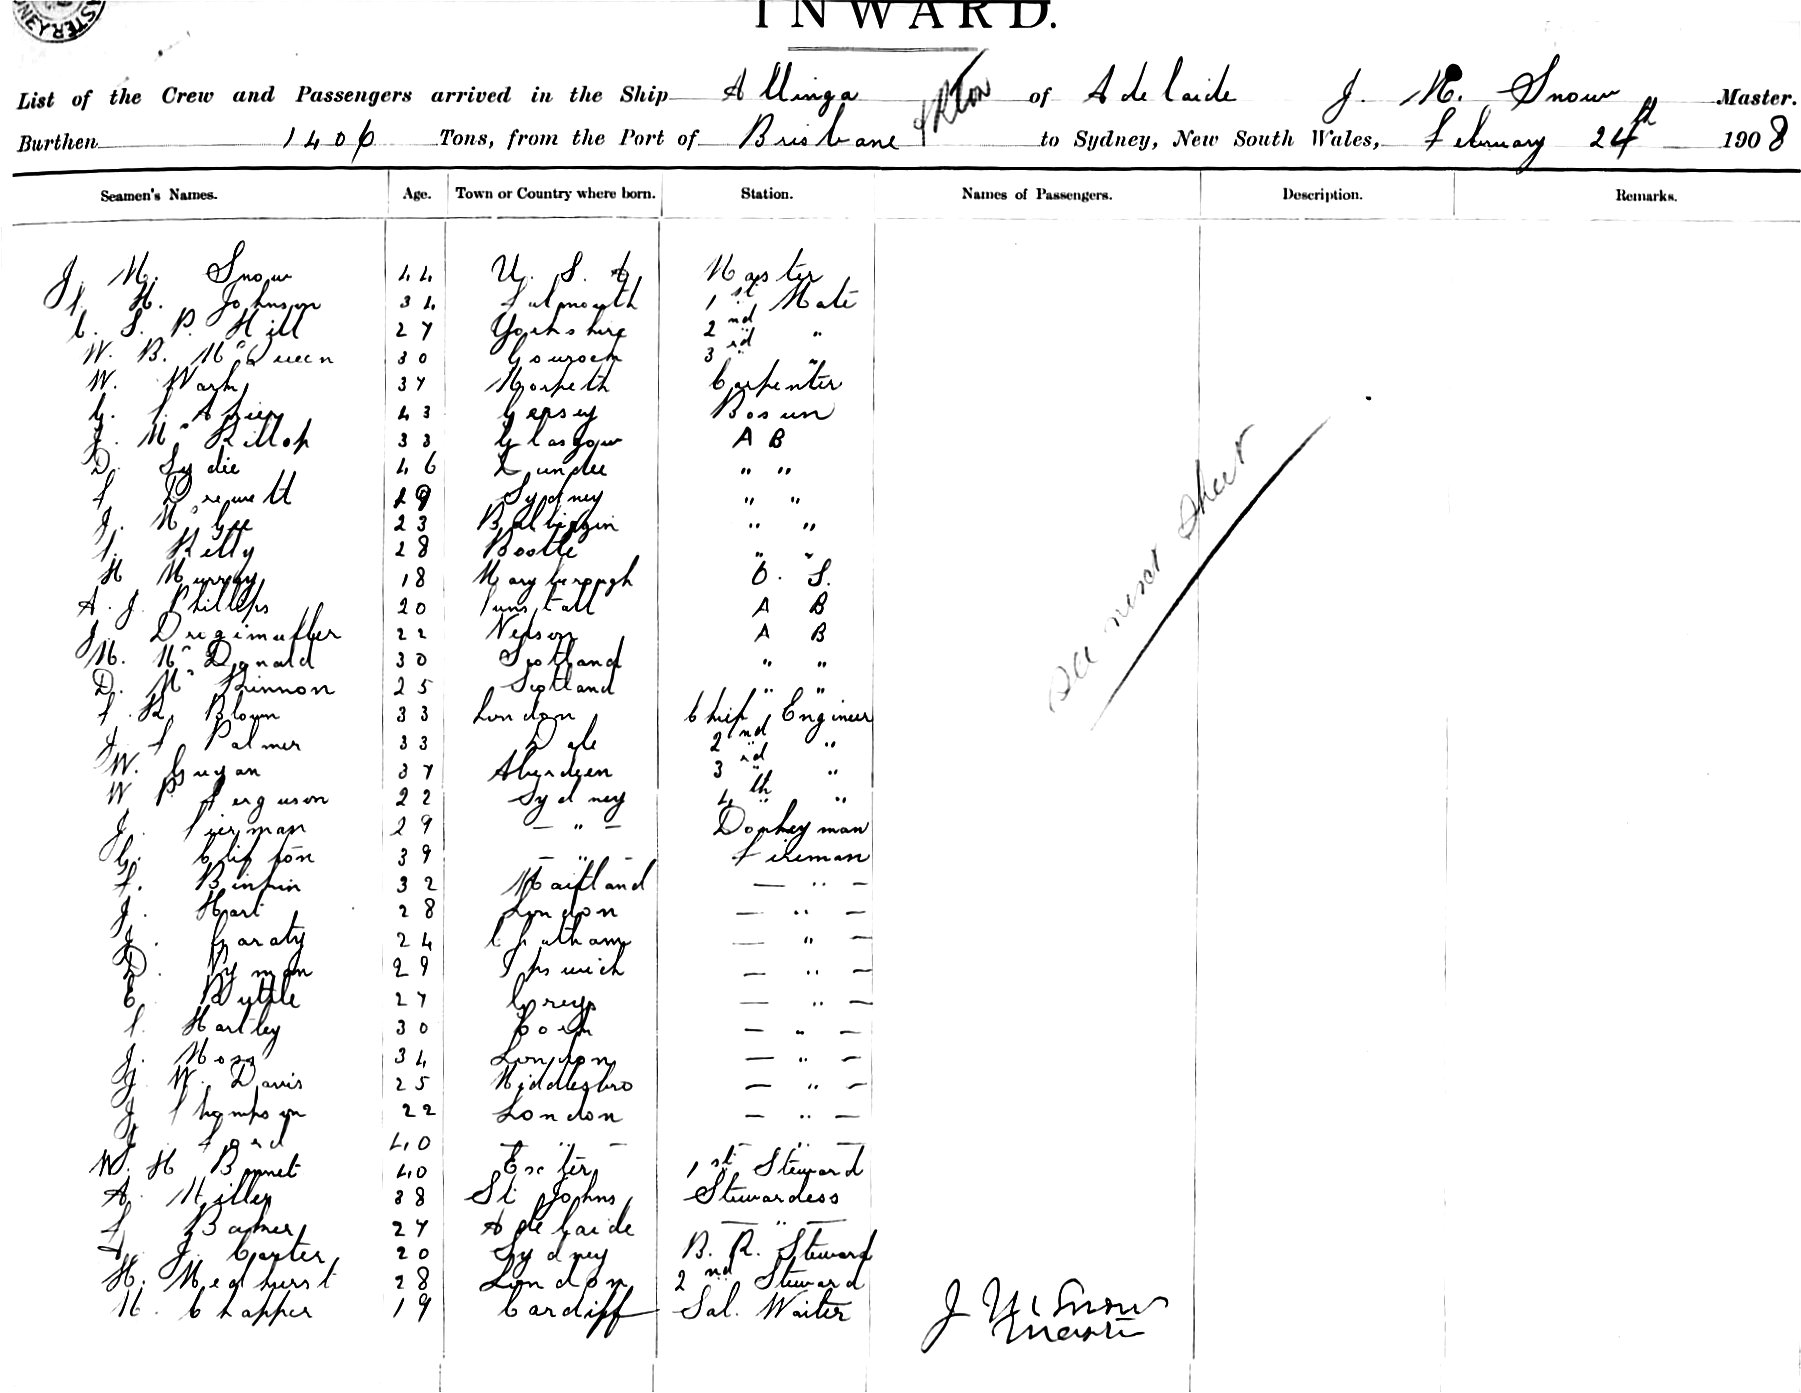 INWARD.
List of the Crew and Passengers arrived in the Ship Allinga of Adelaide J. M. Snow Master.
Burthen 1406 Tons, from the Port of Brisbane to Sydney, New South Wales, February 24th 1908
Seamen's Names. Age. Town or Country where born. Station. Names of Passengers. Description. Remarks.
J. M. Snow 44 U. S. A Master
T. H. Johnson 34 Falmouth 1st Mate
C. S. P. Hill 27 Yorkshire 2nd "
W. B. McQueen 30 Gourock 3rd "
W. Wark 37 Morpeth Carpenter
G. F. 43 Jersey Bosun
J. McKillop 33 Glasgow A B
D. Lydie 46 Dundee " "
F Drewett 29 Sydney " "
J. McGee 23 Balbiggin " "
T. Kelly 28 Bootle " "
H Murray 18 Maryborough O. S.
A. J. Phillips 20 Tunstall A B
J. 22 Nelson A B
M. McDonald 30 Scotland " "
D. McKinnon 25 Scotland " "
F. R. Blown 33 London Chief Engineer
J. F Palmer 33 Dale 2nd "
W. Gugan 37 Aberdeen 3rd "
W P. Ferguson 22 Sydney 4th "
J. Tierman 29 — " — Donkeyman
G. Clifton 39 — " — Fireman
F. Binfin 32 Maitland — " —
J. Hart 28 London — " —
J. Garaty 24 Chatham — " —
D. Nyman 29 Ipswich — " —
E. Byttle 27 Greys — " —
T. Hartley 30 Cork — " —
J. Moss 34 London — " —
J. W. Davis 25 Middlesbro — " —
J Thompson 22 London — " —
J. Ford 40 — " — — " —
W. H Bonnet 40 Exeter 1st Steward
A. Miller 38 St Johns Stewardess
F Baker 27 Adelaide — " —
A. J. Carter 20 Sydney B. R. Steward
H. Medhurst 28 London 2nd Steward
M. Chapper 19 Cardiff Sal. Waiter
see next sheet
J M Snow
Master